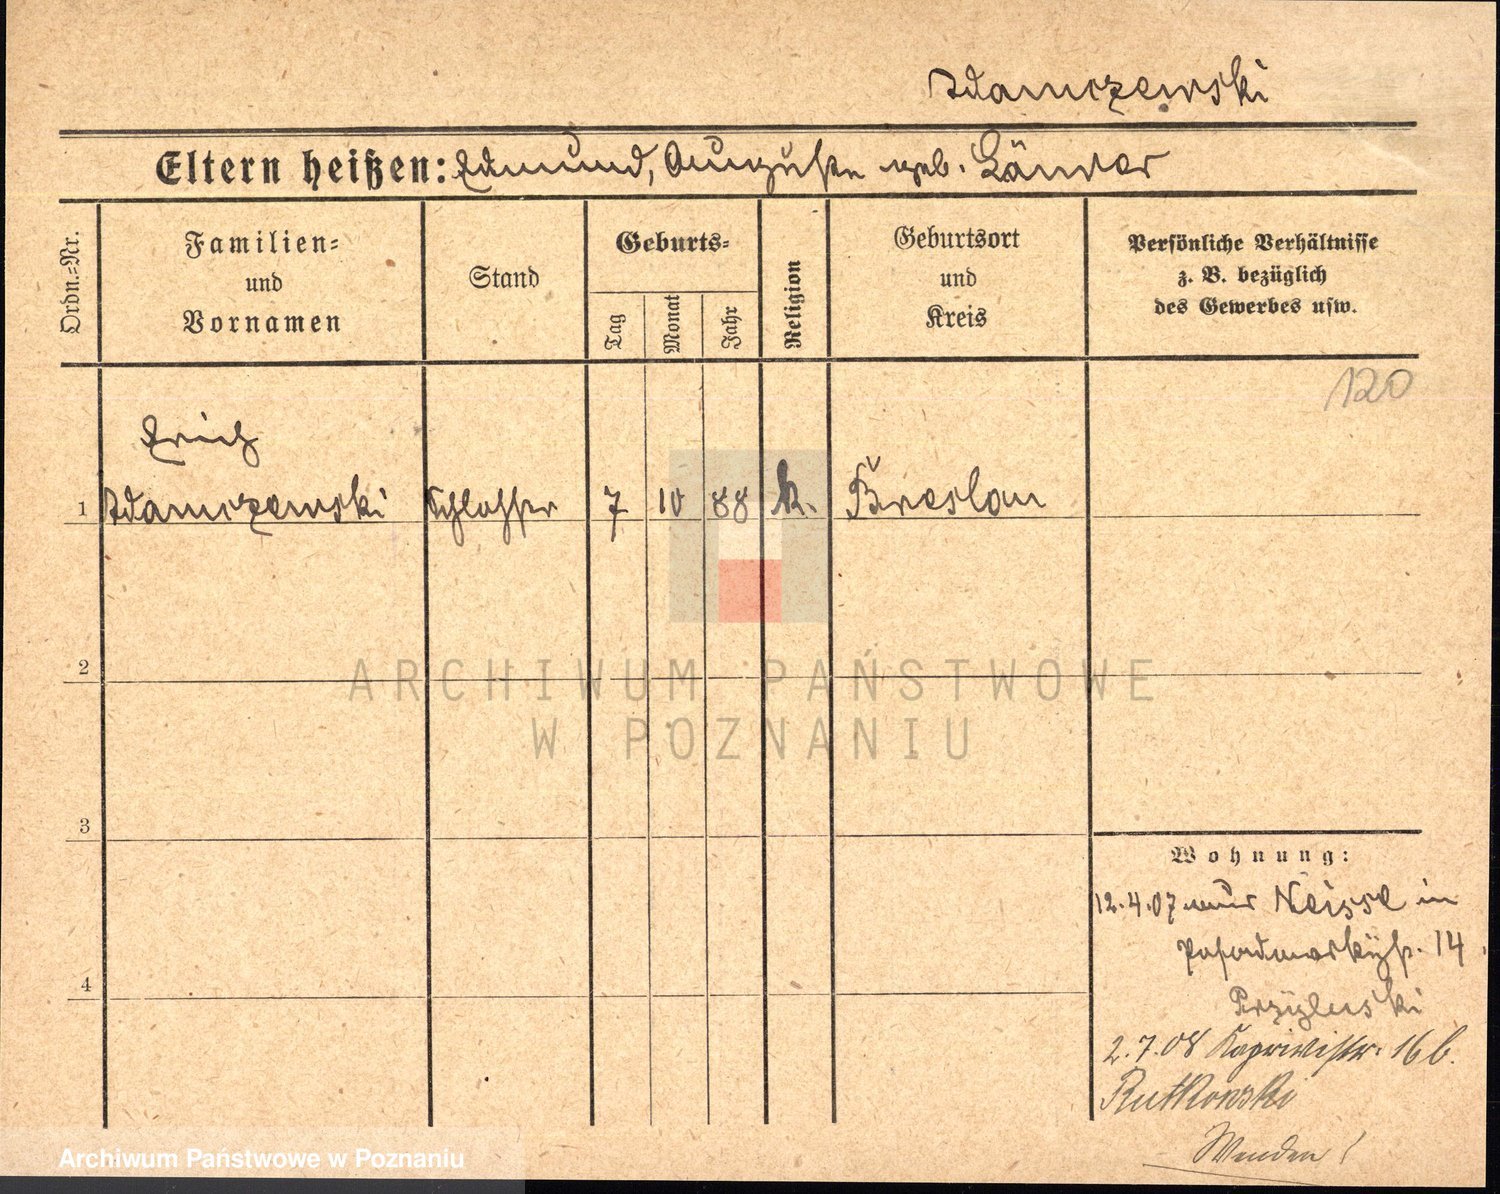 Adamczewski
Eltern heißen: Edmund, Auguste geb.
Ordn.=Nr.
Familien=
und
Vornamen
Stand
Geburts=
Tag
Monat
Jahr
Religion
Geburtsort
und
Kreis
Persönliche Verhältnisse
z. B. bezüglich
des Gewerbes usw.
120
Erich
1 Adamczewski Schlosser 7 10 88 k. Breslau
2
ARCHIWUM PAŃSTWOWE
W POZNANIU
3
Wohnung:
12.4.07 aus Neisse in
14
4
Przyluski
2.7.08 Kaprivistr. 16 b.
Rutkowski
Wenden!
Archiwum Państwowe w Poznaniu